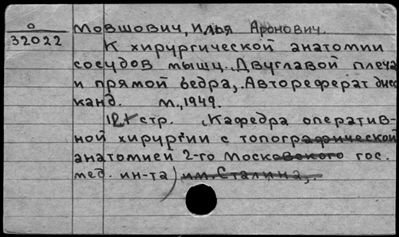 о
32022
Мовшович, Илья Аронович.
К хирургической анатомии
сосудов мышц. Двуглавой плеча
и прямой бедра, Автореферат дисс
канд. М., 1949.
стр. (Кафедра оператив-
ной хирургии с топографической
анатомией 2-го Московского гос.
мед. ин-та) им. Сталина,.